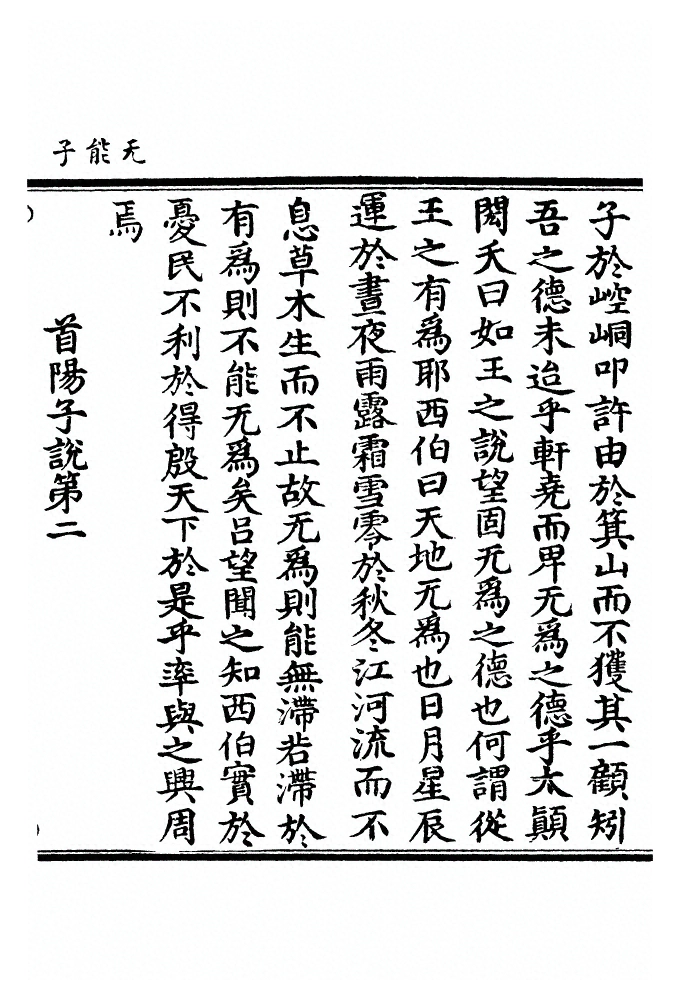 子能无
子於崆峒叩許由於箕山而不獲其一顧矧
吾之德未迨乎軒堯而卑无爲之德乎太顛
閎夭曰如王之說望固无爲之德也何謂從
王之有爲耶西伯曰天地无爲也日月星辰
運於晝夜雨露霜雪零於秋冬江河流而不
息草木生而不止故无爲則能無滯若滯於
有爲則不能无爲矣呂望聞之知西伯實於
憂民不利於得殷天下於是乎率與之興周
焉
首陽子說第二